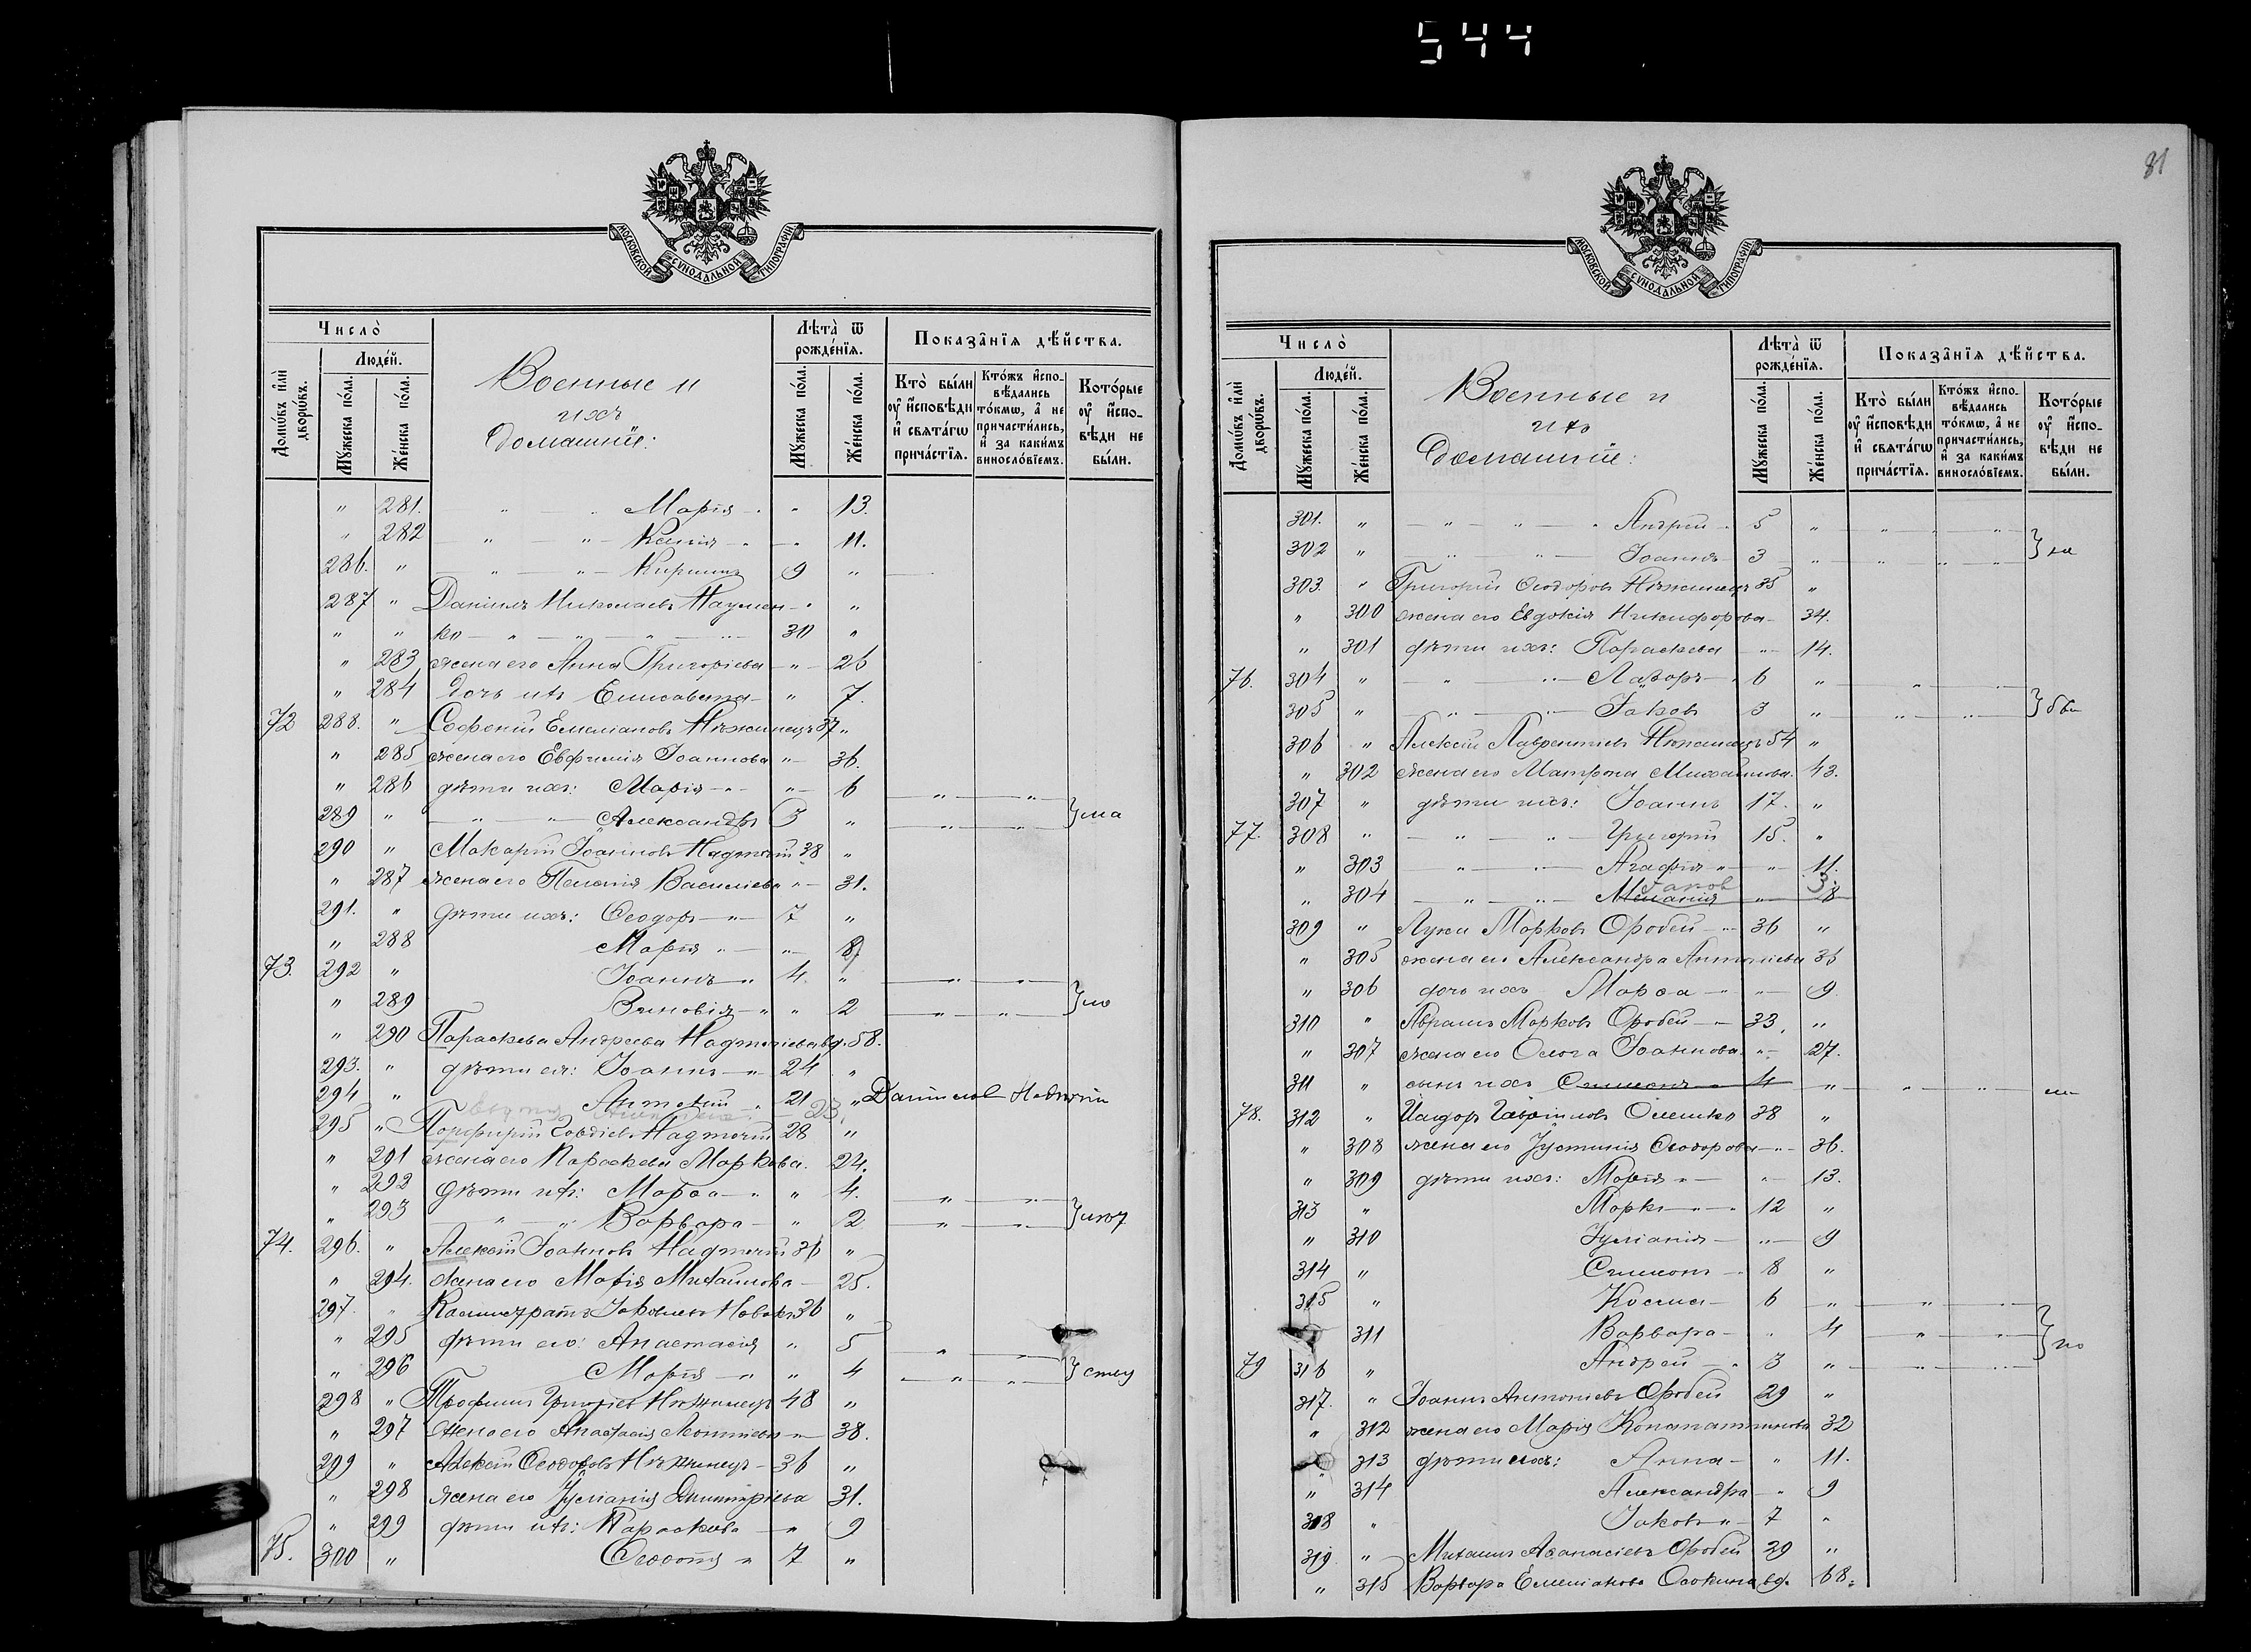 544
81
МОСКОВСКОЙ СѴНОДАЛЬНОЙ ТИПОГРАФІИ
Число̀
Людéй.
Домѡ́въ и҆лѝ дворѡ́въ.
Мꙋ́жеска по́ла.
Же́нска по́ла.
Военные и
ихъ
домашніе:
Лѣта̀ ѿ рожде́нїѧ.
Мꙋ́жеска по́ла.
Же́нска по́ла.
Показа̑нїѧ дѣ́йства.
Кто̀ бы́ли ᲂу҆ и҆сповѣди и҆ свѧта́гѡ прича́стїѧ.
Кто́жъ и҆сповѣ́дались то́кмѡ, а҆ не причасти́лись, и҆ за каки́мъ винослов́їемъ.
Кото́рые ᲂу҆ и҆сповѣди не бы́ли.
" 281. " " Марія " " 13.
" 282 " " Ксенія " " 11.
286. " " " Кириллъ 9 "
287 " Даніилъ Николаевъ Наумен- " "
" " ко " " " " 30 "
" 283 жена его Анна Григоріева " 26
" 284 дочь ихъ Елисавета " 7.
72 288. " Емеліановъ Нѣжинецъ 37 "
" 285 жена его Евфимія Іоаннова " 36.
" 286 дѣти ихъ: Марія " " 6 " "
289 " " " Александръ 3 " " "
290 " Макарій Іоанновъ Надточій 38 "
" 287 жена его Васильева " 31.
291. " дѣти ихъ: Ѳеодоръ " 7 "
" 288 Марія " " 8
73. 292 " Іоаннъ " 4. " " "
" 289 Зиновія " " 2 " "
" 290 Параскева Андреева Надточіева вд. 58.
293. " дѣти ея: Іоаннъ " 24 "
294 " 21 " Даніилов
23.
295 " Порфирій Надточій 28 "
" 291 жена его Параскева Маркова. 24.
" 292 дѣти ихъ: Марѳа " " 4. " "
" 293 " " Варвара " 2 " "
74. 296. " Алексій Іоанновъ Надточій 36 "
" 294. жена его Марія Михаилова 25.
297. " Каллистратъ Іаковлевъ 26 "
" 295 дѣти его: Анастасія " 5 " "
" 296 Марія " " 4 " "
298 " Трофимъ Григоріевъ Нѣжинецъ 48 "
" 297 жена его Анастасія Леонтіева " 38.
299 " Алексій Ѳеодоровъ Нѣжинецъ 36 "
" 298 жена его Іуліанія Димитріева 31.
" 299 дѣти ихъ: Параскева " 9
75. 300 " 7 "
МОСКОВСКОЙ СѴНОДАЛЬНОЙ ТИПОГРАФІИ
Число̀
Людéй.
Домѡ́въ и҆лѝ дворѡ́въ.
Мꙋ́жеска по́ла.
Же́нска по́ла.
Военные и
ихъ
домашніе:
Лѣта̀ ѿ рожде́нїѧ.
Мꙋ́жеска по́ла.
Же́нска по́ла.
Показа̑нїѧ дѣ́йства.
Кто̀ бы́ли ᲂу҆ и҆сповѣди и҆ свѧта́гѡ прича́стїѧ.
Кто́жъ и҆сповѣ́дались то́кмѡ, а҆ не причасти́лись, и҆ за каки́мъ винослов́їемъ.
Кото́рые ᲂу҆ и҆сповѣди не бы́ли.
301. " " " Андрей 5 " " "
302 " " " Іоаннъ 3 " " "
303. " Григорій Ѳеодоровъ Нѣжинецъ 35 "
" 300 жена его Евдокія Никифорова 34.
" 301 дѣти ихъ: Параскева " 14.
76. 304 " " " 6 " " "
305 " " " Іаковъ 3 " " "
306 " Алексій Лаврентіевъ Нѣжинецъ 54 "
" 302 жена его Матрона Михаилова. 43.
307 " дѣти ихъ: Іоаннъ 17. "
77. 308 " " " Григорій 15. "
" 303 " " Агафія " " 11.
Іаков 3.
" 304 " " Меланія " 8
309 " Лука Марковъ Оробей " 36 "
" 305 жена его Александра Антоніева 36
" 306 дочь ихъ Марѳа " " 9
310 " Аврамъ Марковъ Оробей " 33 "
" 307 жена его Ольга Іоаннова " 27.
311 " сынъ ихъ Симеонъ 4 " " "
78. 312 " Исидоръ Гавріиловъ Олешко 38 "
" 308 жена его Іустинія Ѳеодорова " 36.
" 309 дѣти ихъ: Марія " " 13.
313 " Маркъ " " 12 "
" 310 Іуліанія " 9
314 " Симеонъ 8 "
315 " Косма 6 " " "
311 Варвара " 4 " "
79 316 " Андрей " 3 " " "
317. " Іоаннъ Антоніевъ Оробей 29 "
" 312 жена его Марія Константинова 32
" 313 дѣти ихъ: Анна " 11.
" 314 Александра " 9
318 " Іаковъ " 7 "
319 " Михаилъ Аѳанасіевъ Оробей 29 "
" 315 Варвара Емеліанова вд. 68.